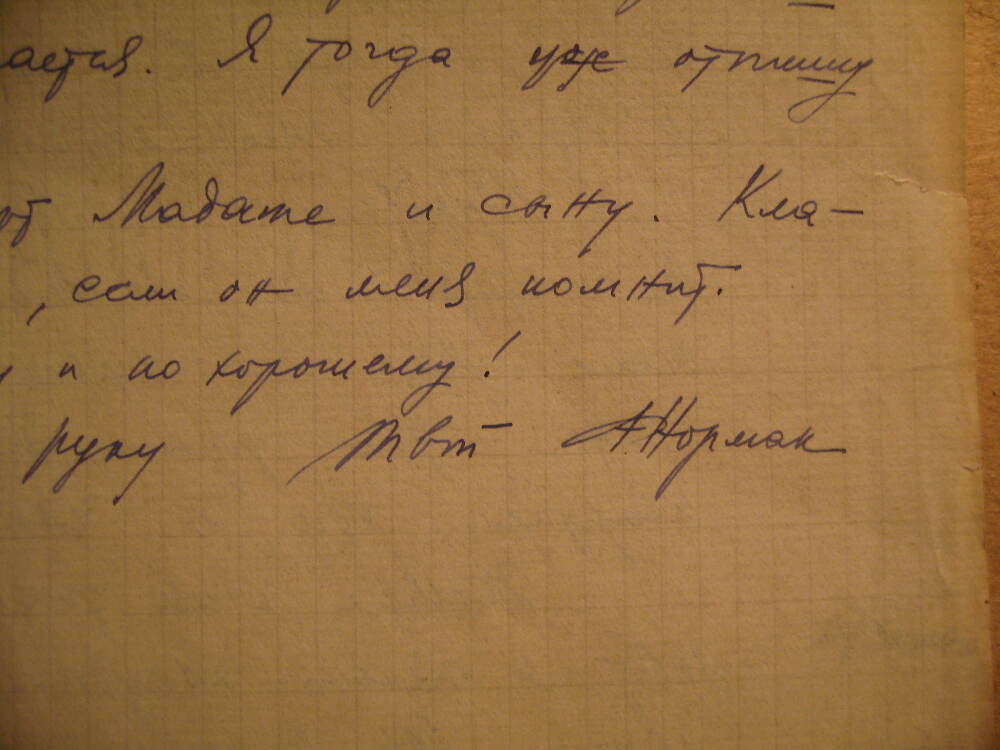 ается. Я тогда уж отпишу
от Мадате и сыну. Кла-
, если он меня помнит.
и по хорошему!
руку Твой